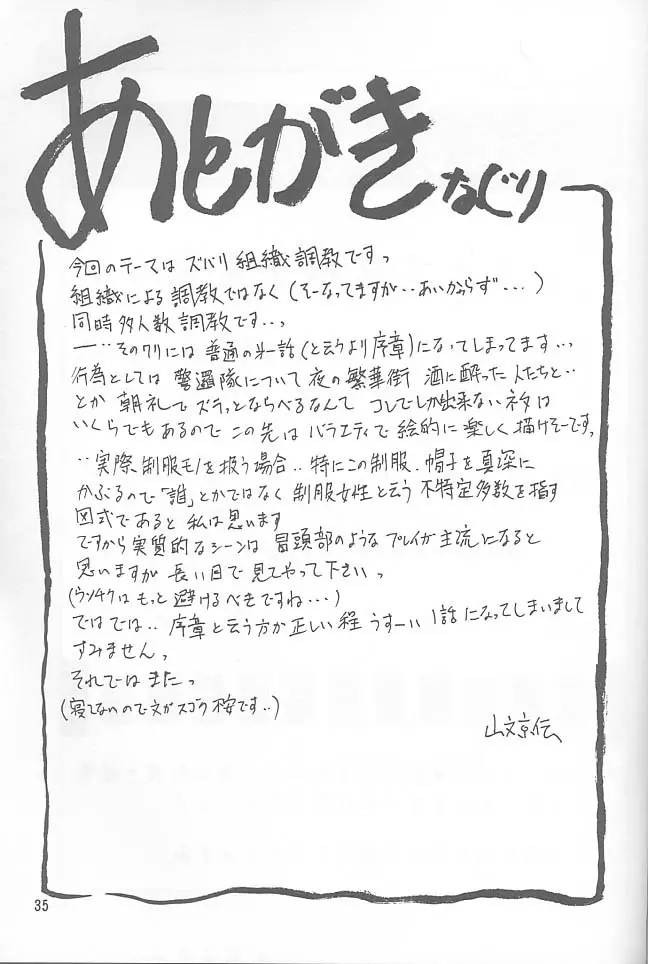 あとがき なぐり
今回のテーマは ズバリ 組織調教ですっ
組織による 調教ではなく(そーなってますが‥あいかわらず‥・)
同時多人数調教です‥っ
―‥そのワリには 普通の第一話(と云うより序章)になってしまってます‥っ
行為としては 警邏隊について 夜の繁華街 酒に酔った人たちと‥
とか 朝礼で ズラッとならべるなんて コレでしか出来ないネタは
いくらでもあるので この先は バラエティで絵的に楽しく描けそーです。
‥実際、制服モノを扱う場合‥特にこの制服、帽子を真深に
かぶるので「誰」とかではなく 制服女性と云う 不特定多数を指す
図式であると 私は思います
ですから実質的なシーンは 冒頭部のような プレイが主流になると
思いますが 長い目で見てやって下さいっ
(ウンチクは もっと避けるべきですね‥・)
ではでは‥ 序章と云う方が正しい程 うすーい 1話になってしまいまして
すみません。
それでは またっ
(寝てないので文がスゴク不安です‥)
山文京伝
35